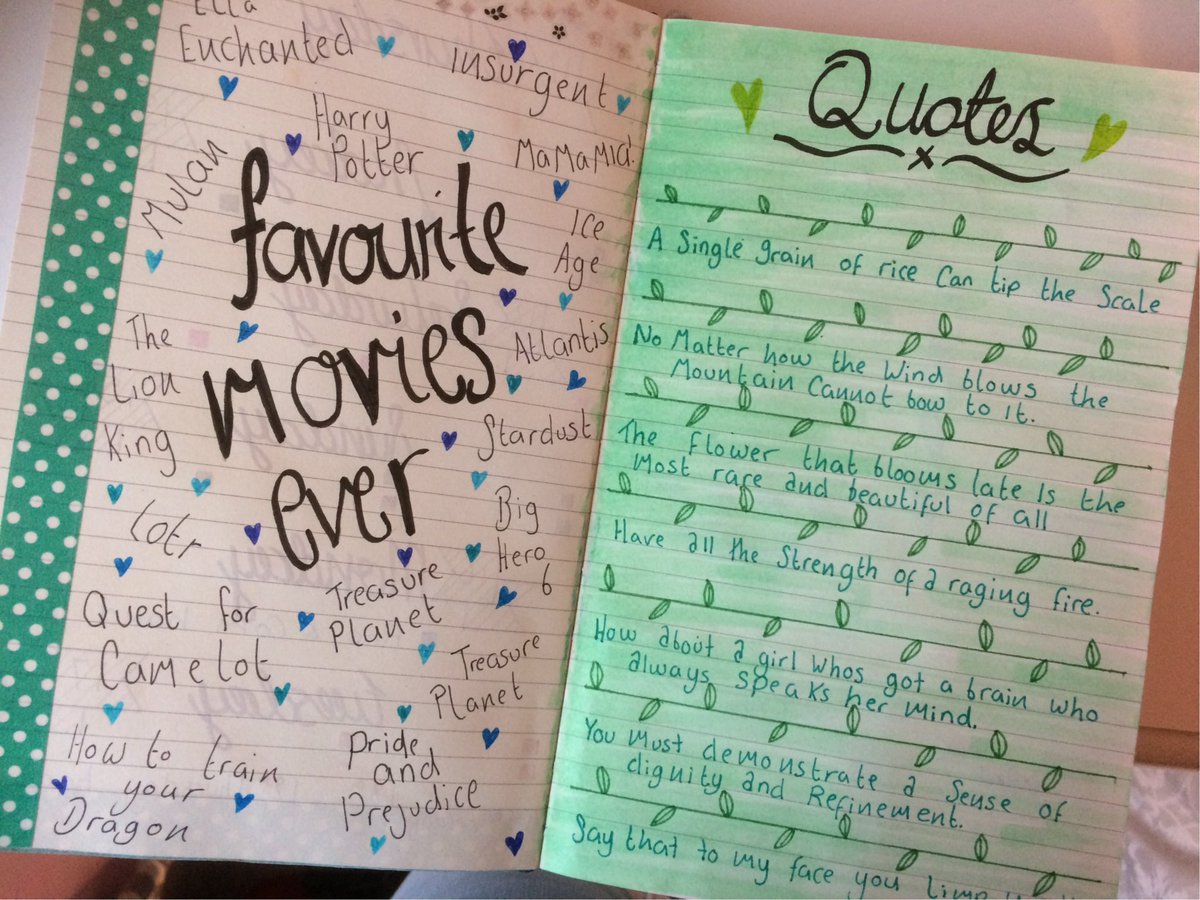 Ella
Enchanted
Insurgent
Harry
Potter
MaMaMia!
Mulan
favourite
Ice
Age
movies
Atlantis
The
Lion
King
Stardust
ever
Lotr
Big
Hero
6
Treasure
Planet
Quest for
Camelot
Treasure
Planet
How to train
your
Dragon
Pride
and
Prejudice
Quotes
x
A Single grain of rice Can tip the Scale
No Matter how the Wind blows the
Mountain Cannot bow to it.
The flower that blooms late Is the
Most rare and beautiful of all
Have all the Strength of a raging fire.
How about a girl whos got a brain who
always speaks her mind.
You Must demonstrate a Sense of
dignity and Refinement.
Say that to my face you limp